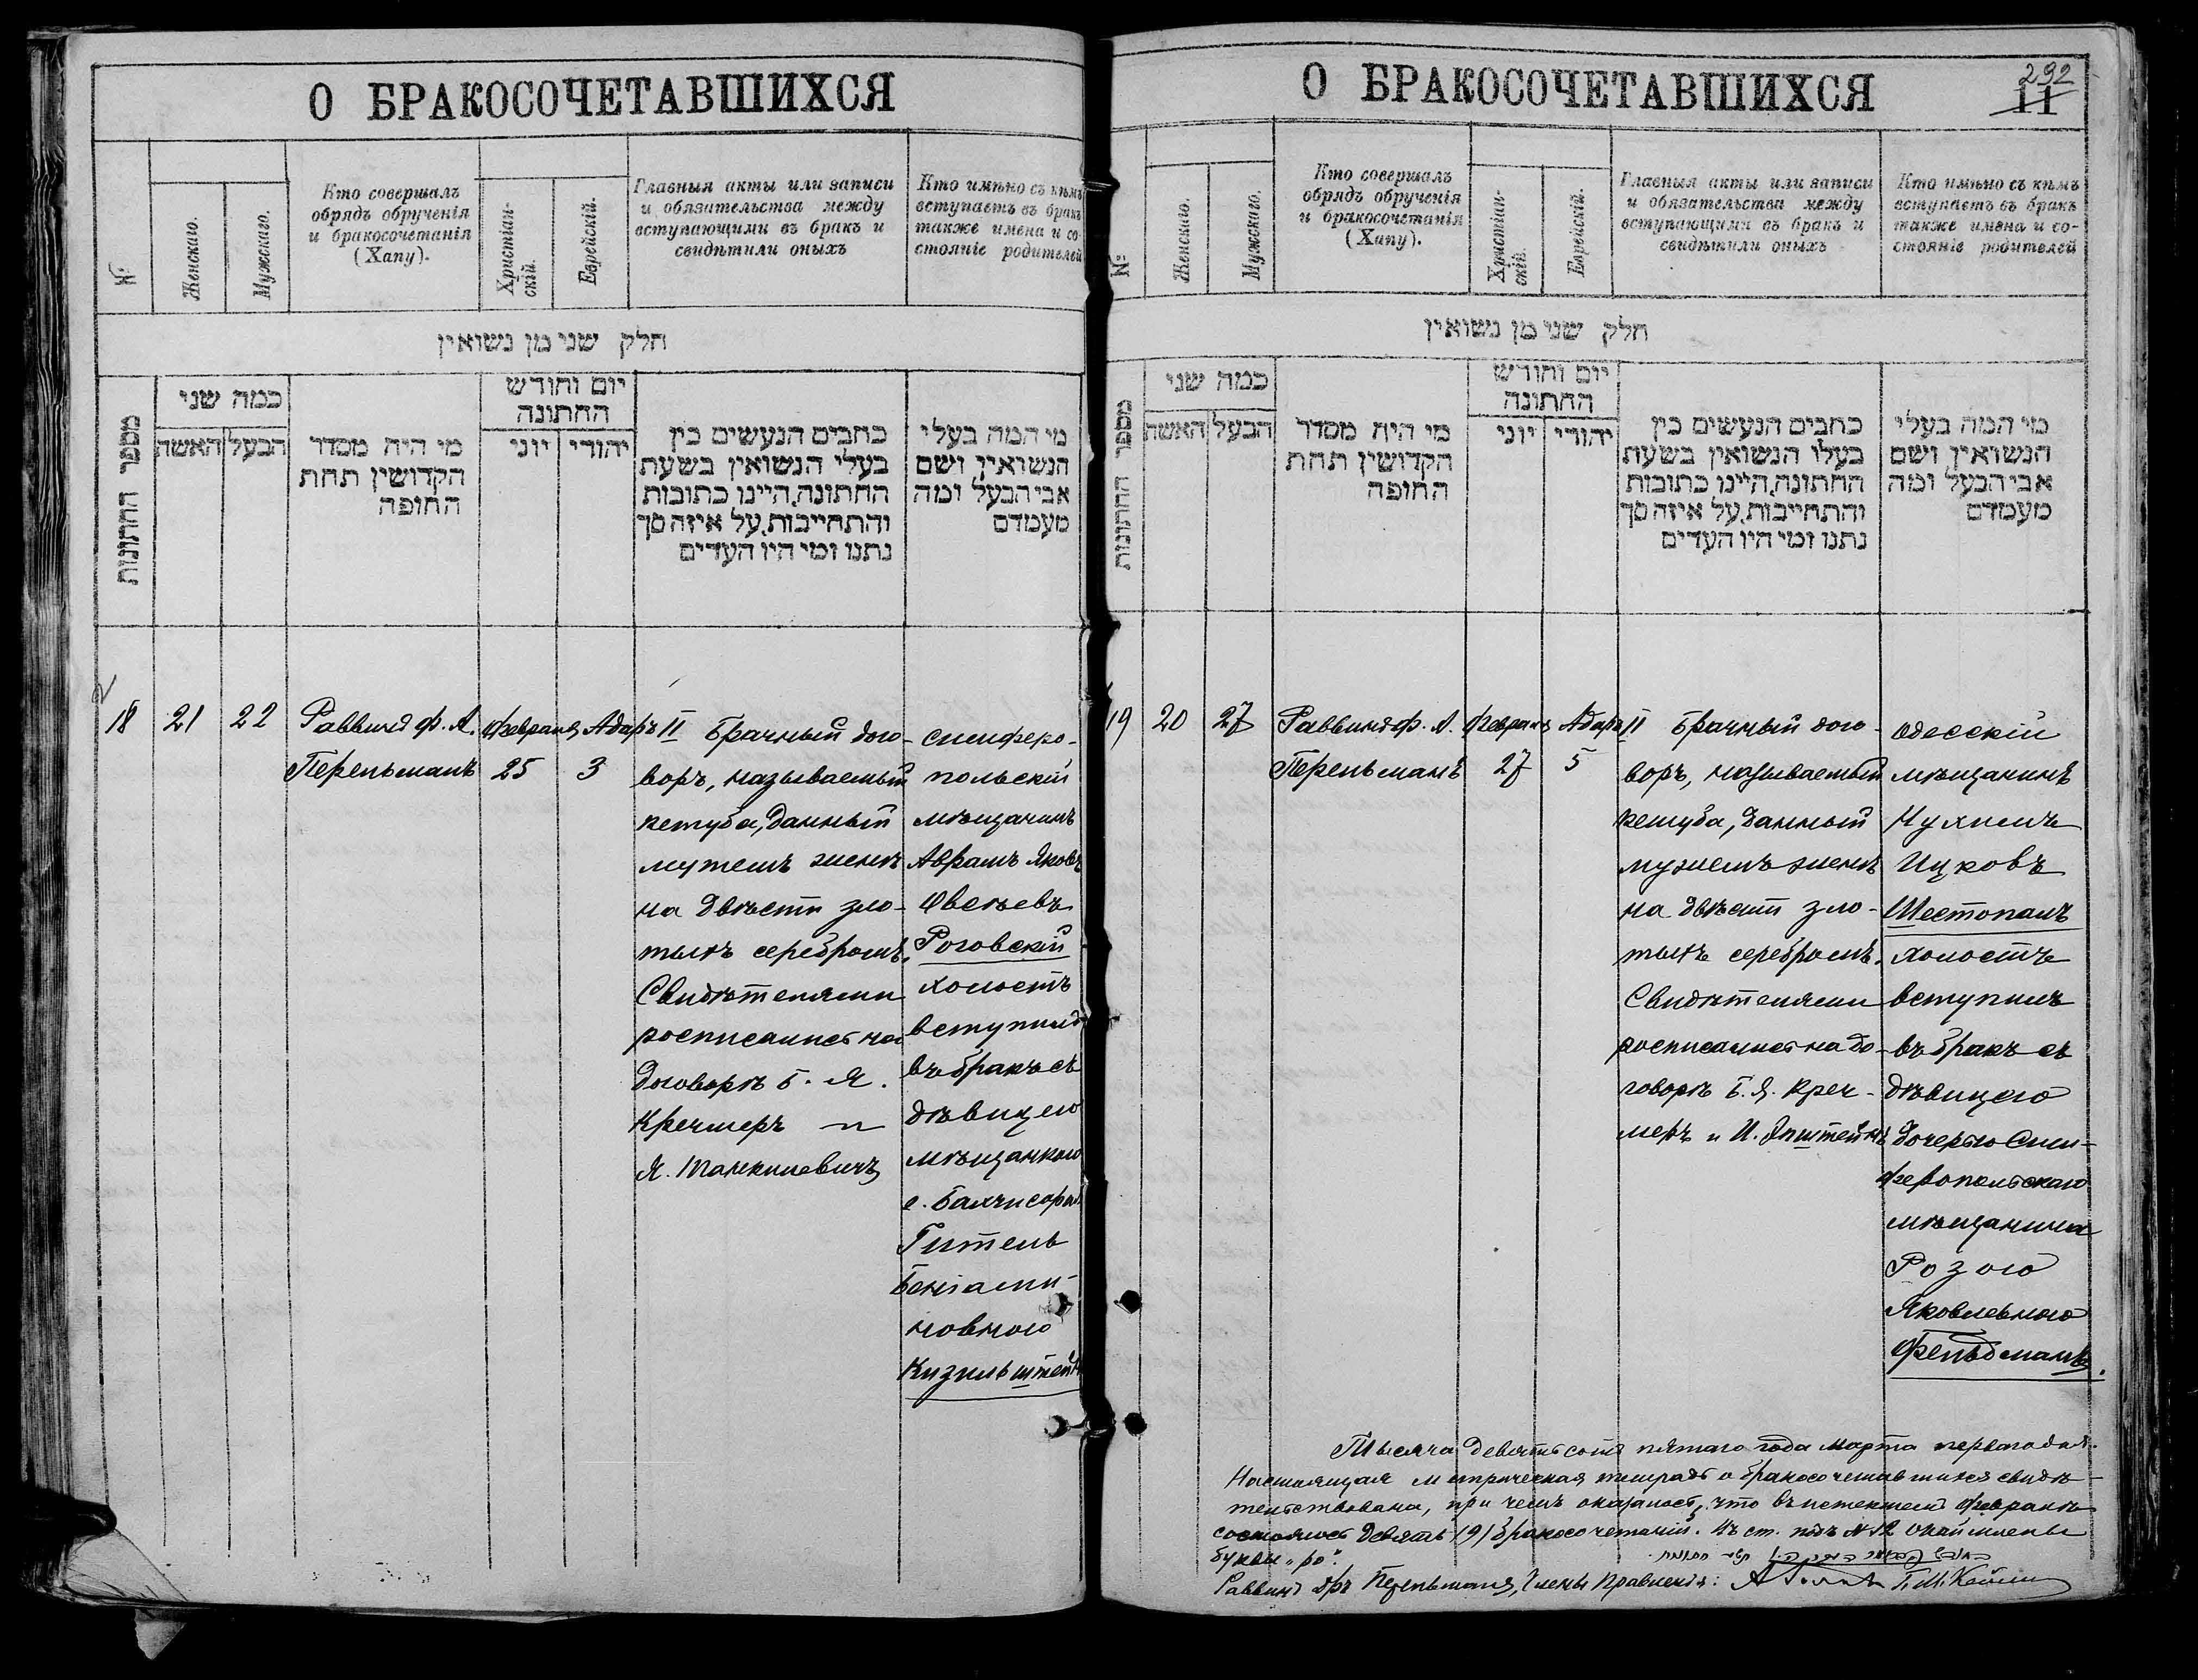 О БРАКОСОЧЕТАВШИХСЯ
№
Женскаго.
Мужескаго.
Кто совершалъ
обрядъ обрученія
и бракосочетанія
(Хапу).
Христіан-
скій.
Еврейскій.
Главныя акты или записи
и обязательства между
вступающими въ бракъ и
свидѣтили оныхъ
Кто имѣно съ кѣмъ
вступаетъ въ бракъ
также имена и со-
стояніе родителей
חלק שני מן נשואין
מספר החתונות
כמה שני
האשה
הבעל
מי היה מסדר
הקדושין תחת
החופה
יום וחודש
החתונה
יוני
יהודי
כתבים הנעשים בין
בעלי הנשואין בשעת
החתונה, היינו כתובות
והתחייבות, על איזה סך
נתנו ומי היו העדים
מי המה בעלי
הנשואין ושם
אבי הבעל ומה
מעמדם
18
21
22
Раввинъ Ф. А.
Перельманъ
Февраля
25
Адаръ II
3
Брачный дого-
воръ, называемый
кетуба, данный
мужемъ женѣ
на двѣсти зло-
тыхъ серебромъ.
Свидѣтелями
росписались на
договорѣ Б. Я.
Кречмеръ и
Я. Танкилевичъ
Симферо-
польскій
мѣщанинъ
Аврамъ Яковъ
Овсѣевъ
Роговскій
холостъ
вступилъ
въ бракъ съ
дѣвицею
мѣщанкою
г. Бахчисарая
Гитель
Беніами-
новною
Кизильштейнъ
О БРАКОСОЧЕТАВШИХСЯ
292
11
№
Женскаго.
Мужскаго.
Кто совершалъ
обрядъ обрученія
и бракосочетанія
(Хапу).
Христіан-
скій.
Еврейскій.
Главныя акты или записи
и обязательства между
вступающими въ бракъ и
свидѣтили оныхъ
Кто имѣно съ кѣмъ
вступаетъ въ бракъ
также имена и со-
стояніе родителей
חלק שני מן נשואין
מספר החתונות
כמה שני
האשה
הבעל
מי היה מסדר
הקדושין תחת
החופה
יום וחודש
החתונה
יוני
יהודי
כתבים הנעשים בין
בעלי הנשואין בשעת
החתונה, היינו כתובות
והתחייבות, על איזה סך
נתנו ומי היו העדים
מי המה בעלי
הנשואין ושם
אבי הבעל ומה
מעמדם
19
20
27
Раввинъ Ф. А.
Перельманъ
Февраля
27
Адаръ II
5
Брачный дого-
воръ, называемый
кетуба, данный
мужемъ женѣ
на двѣсти зло-
тыхъ серебромъ.
Свидѣтелями
росписались на до-
говорѣ Б. Я. Креч-
меръ и И. Эпштейнъ
Одесскій
мѣщанинъ
Нухимъ
Ицковъ
Шестопалъ
холостъ
вступилъ
въ бракъ съ
дѣвицею
дочерью Сим-
феропольскаго
мѣщанина
Розою
Яковлевною
Фельдманъ.
Тысяча девятьсотъ пятаго года Марта перваго дня.
Настоящая метрическая тетрадь о бракосочетавшихся свидѣ-
тельствована, при чемъ оказалось, что въ истекшемъ Февралѣ
состоялось девять (9) бракосочетаній. Въ ст. подъ № 12
буквы „ро".
Раввинъ Дръ Перельманъ, Члены Правленія: